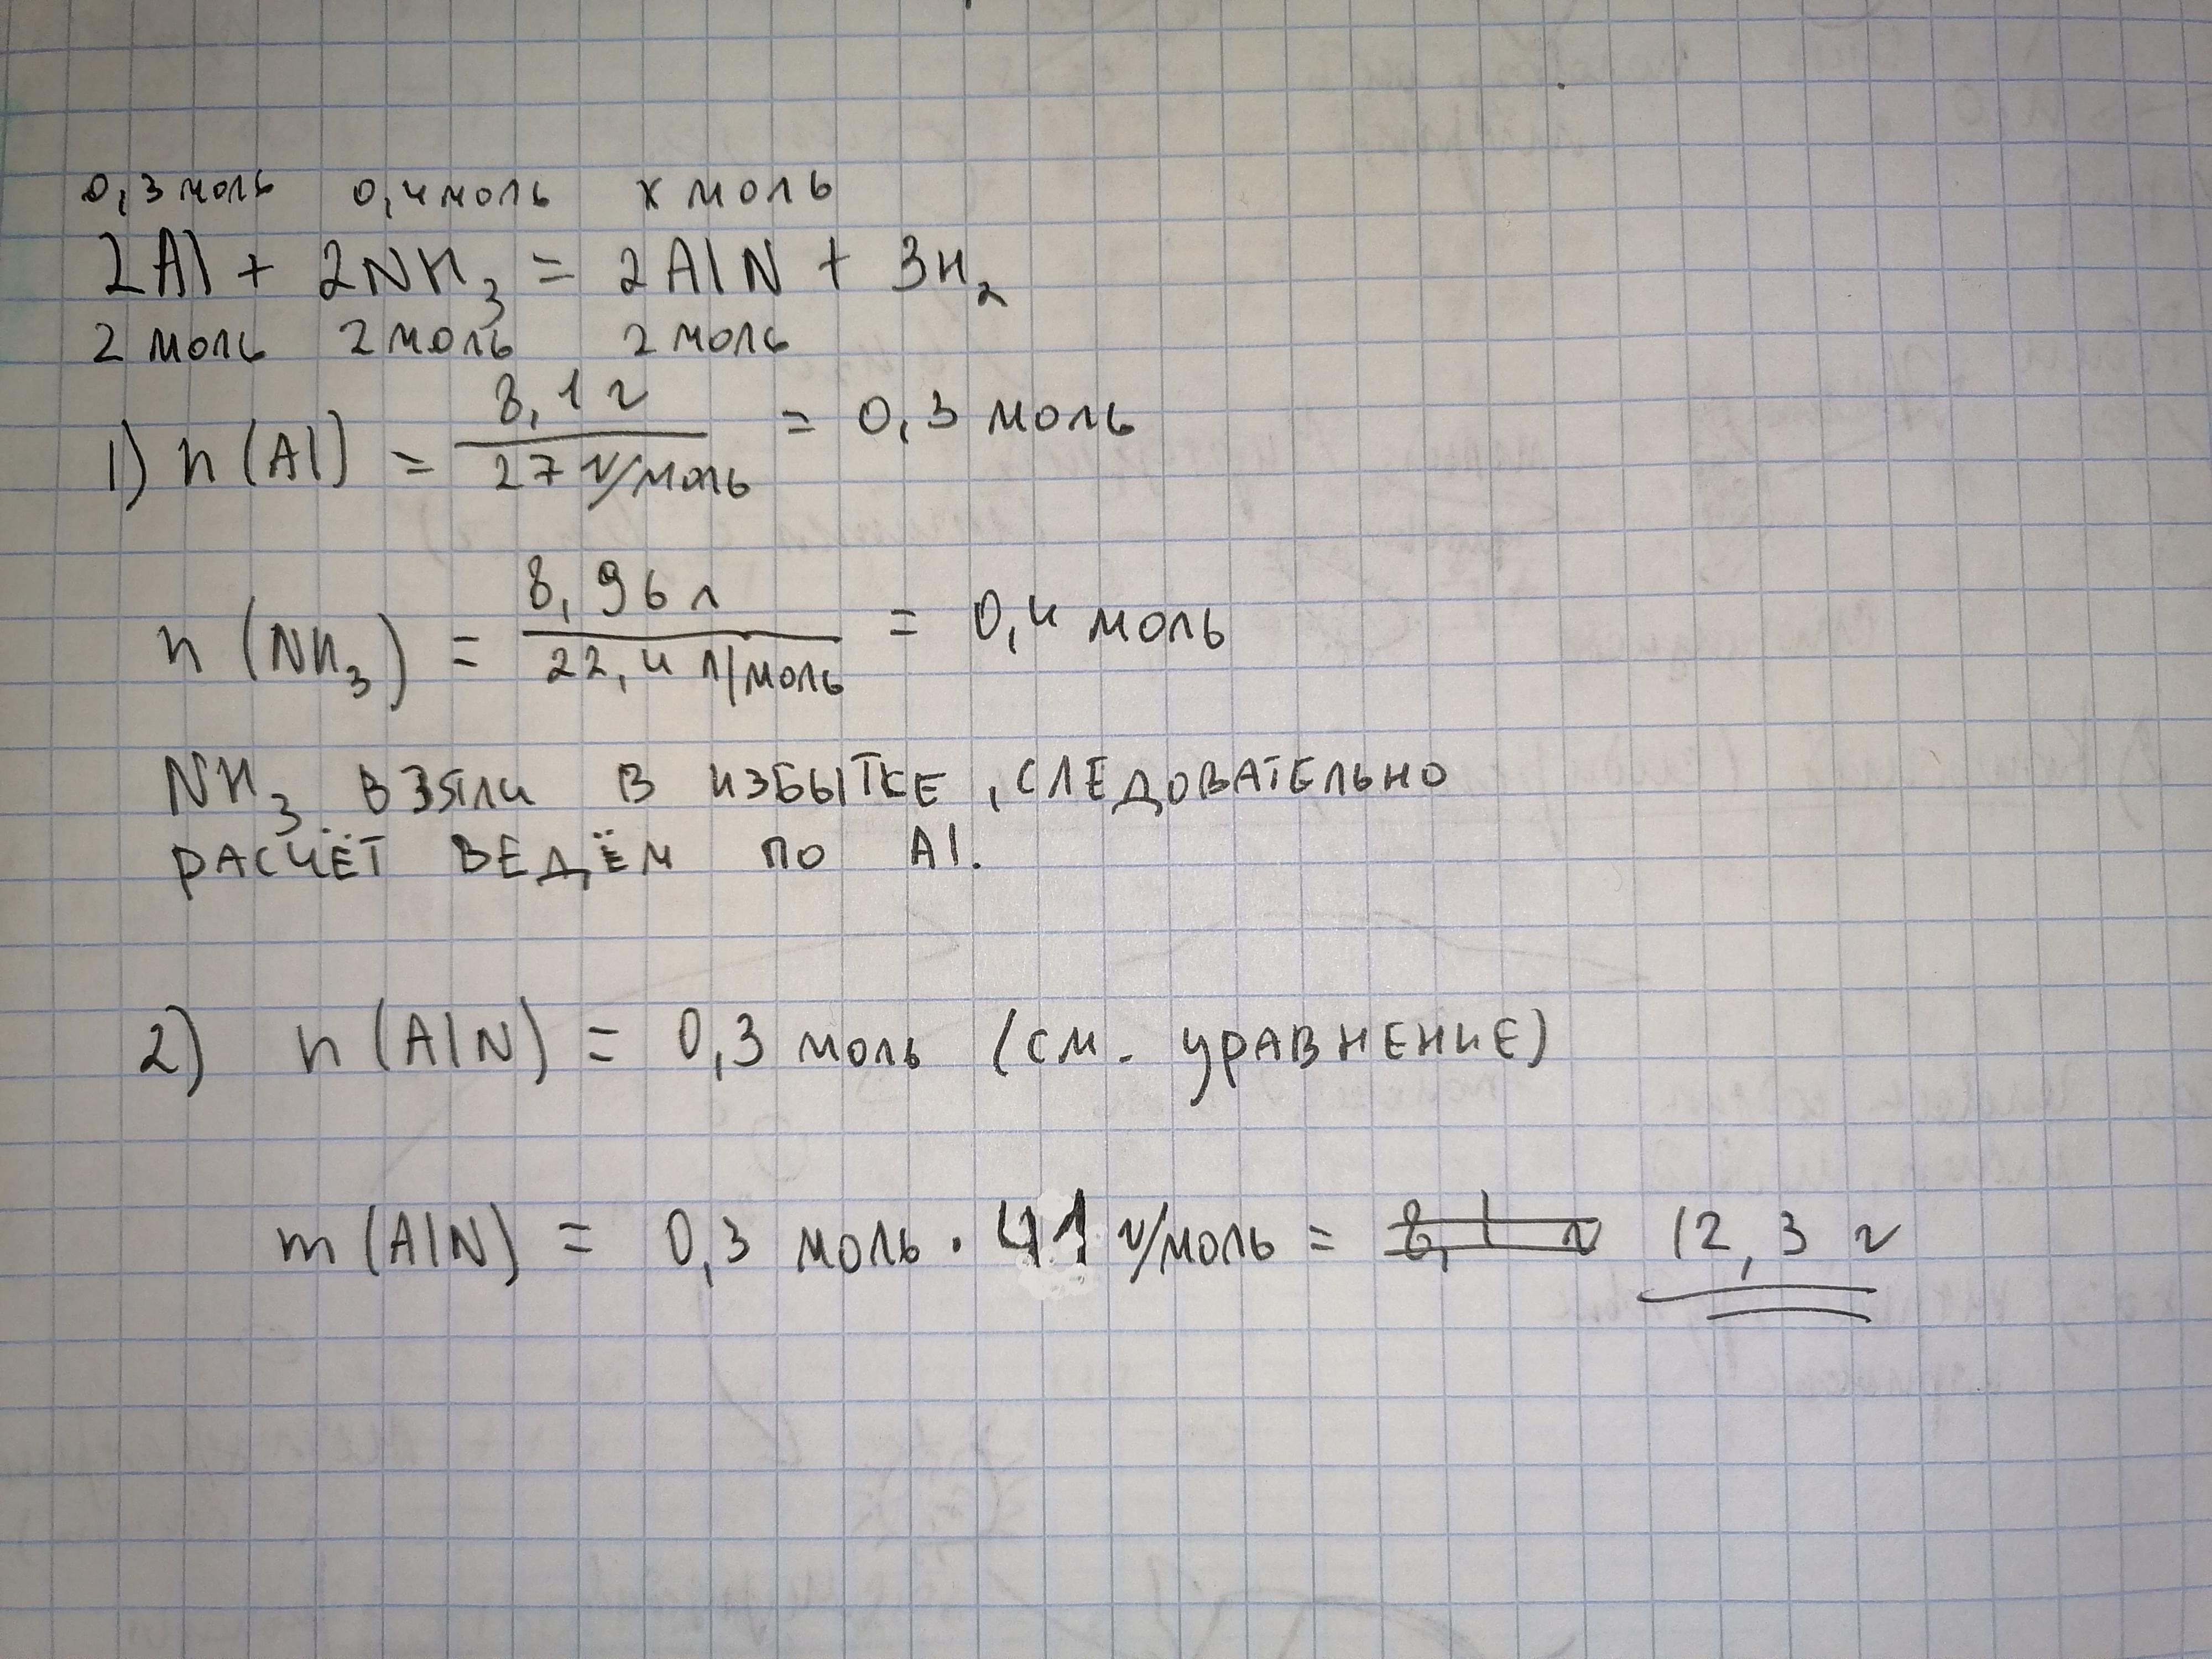 0,3 моль 0,4 моль x моль
2Al + 2NH3 = 2AlN + 3H2
2 моль 2 моль 2 моль
1) n (Al) = 8,1 г / 27 г/моль = 0,3 моль
n (NH3) = 8,96 л / 22,4 л/моль = 0,4 моль
NH3 взяли в избытке, следовательно
расчёт ведём по Al.
2) n (AlN) = 0,3 моль (см. уравнение)
m (AlN) = 0,3 моль · 41 г/моль = 8,1 г 12,3 г